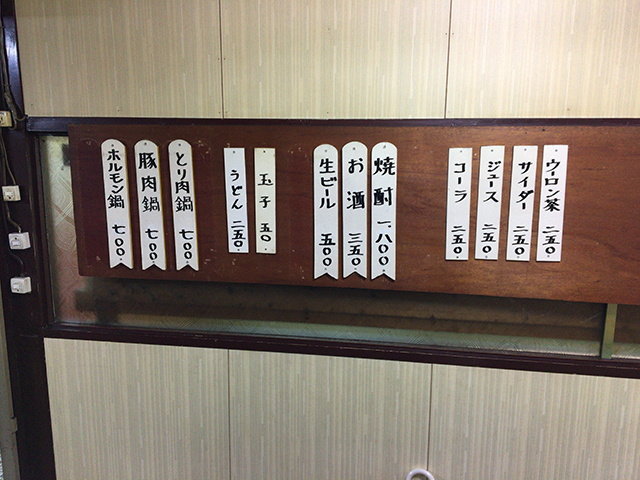 ウーロン茶 二五〇
サイダー 二五〇
ジュース 二五〇
コーラ 二五〇
焼酎 一、八〇〇
お酒 三五〇
生ビール 五〇〇
玉子 五〇
うどん 二五〇
とり肉鍋 七〇〇
豚肉鍋 七〇〇
ホルモン鍋 七〇〇